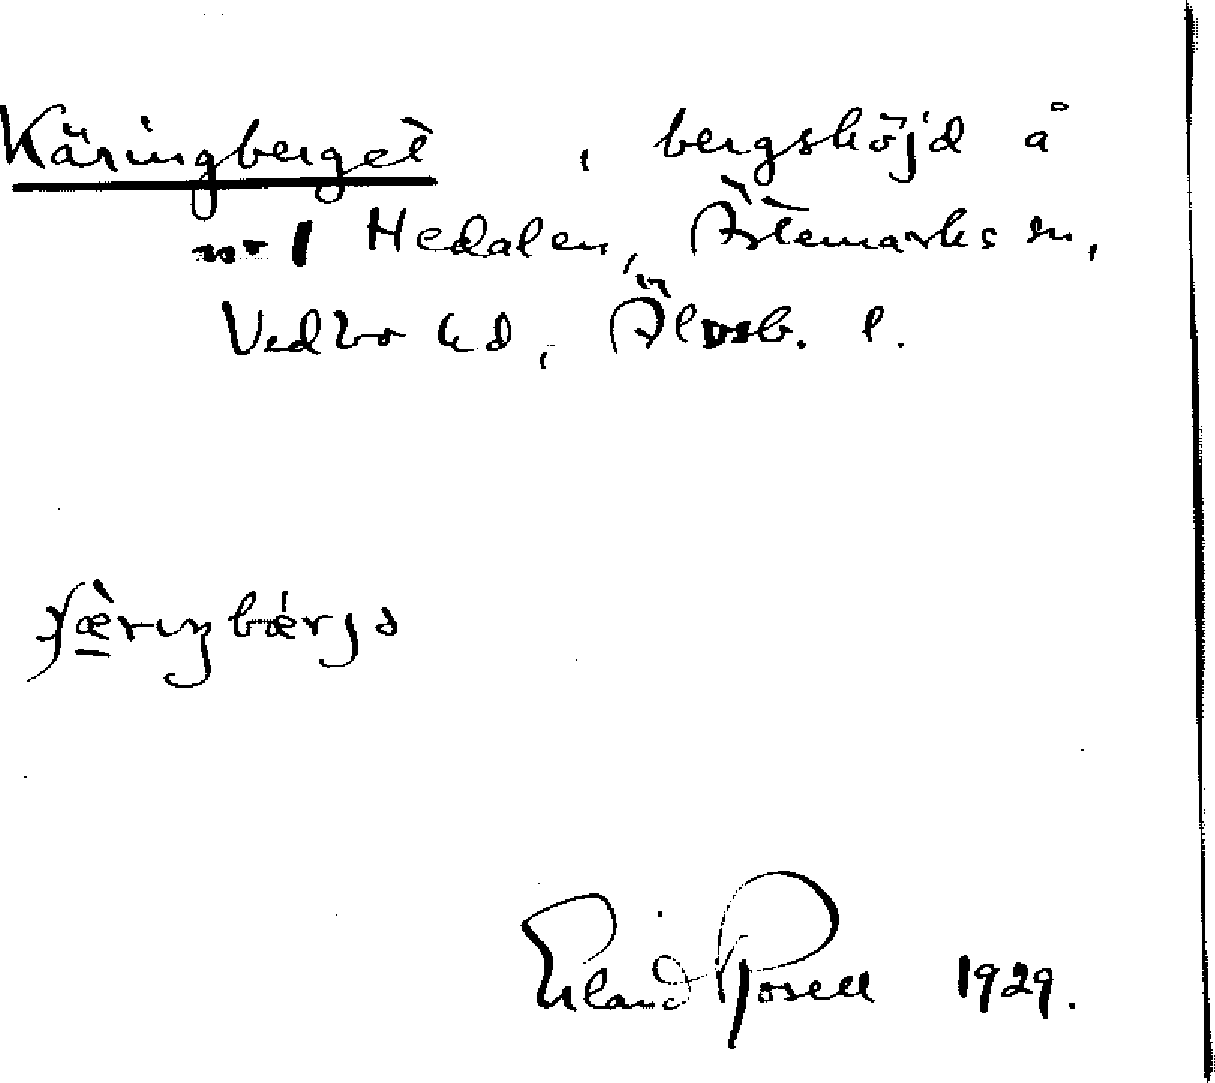 Käringberget, bergshöjd å
nr 1 Hedalen, Ärtemarks sn,
Vedbo hd, Älvsb. l.
Erland Rosell 1929.